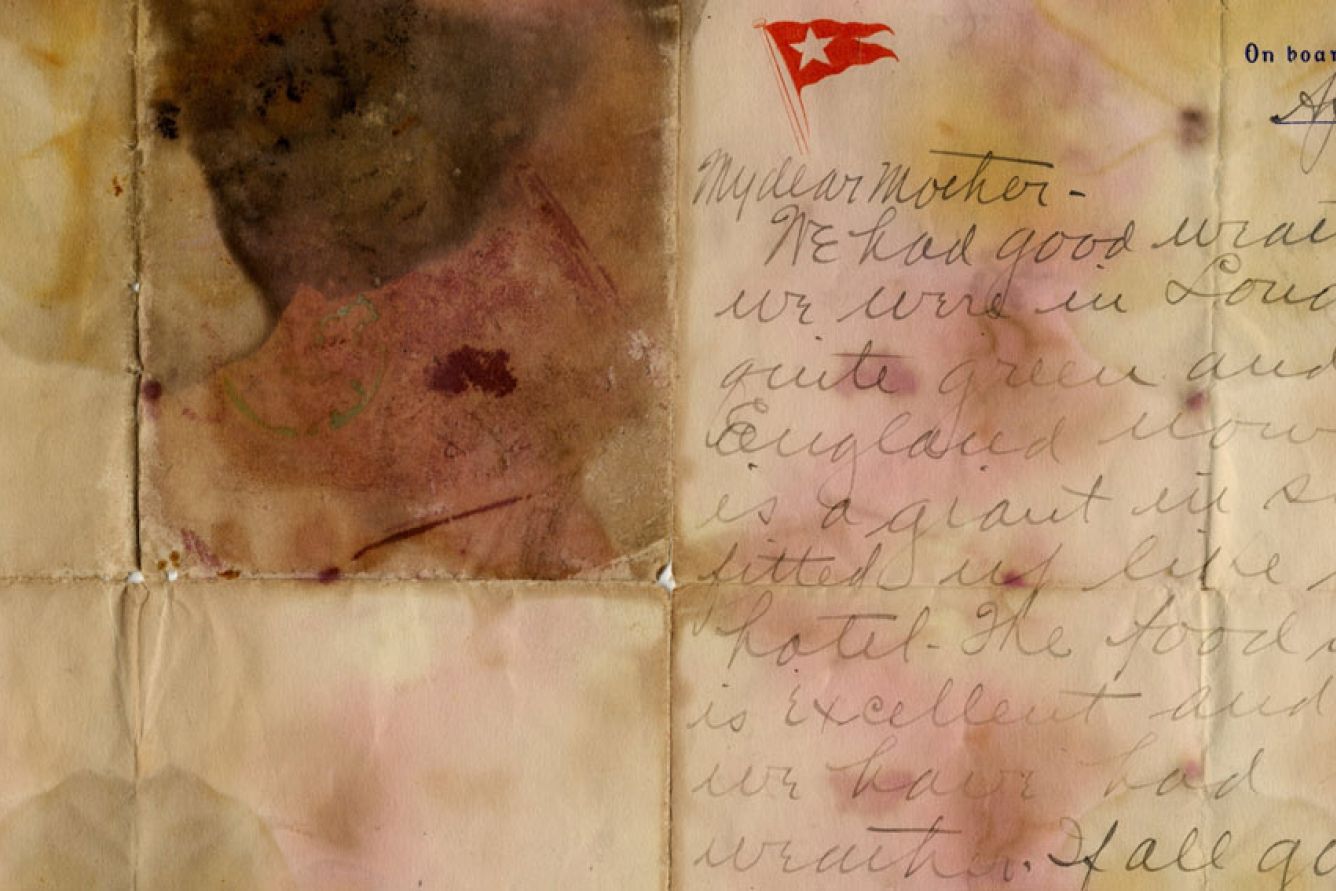 On boar
My dear Mother-
We had good weat
we were in Lond
quite green and
England now
is a giant in s
fitted up like
hotel - The food
is excellent and
we have had
weather. If all go